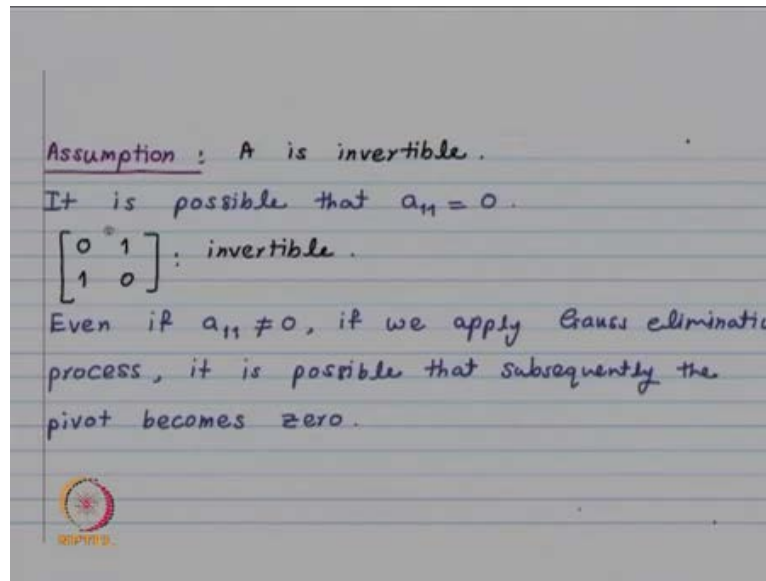 Assumption : A is invertible.
It is possible that a₁₁ = 0.
[0 1
1 0] : invertible.
Even if a₁₁ ≠ 0, if we apply Gauss eliminatio
process, it is possible that subsequently the
pivot becomes zero.
NPTEL